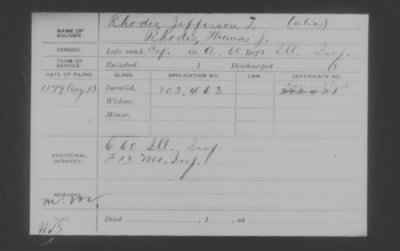 Rhodes, Jefferson T. (alias)
NAME OF SOLDIER: Rhodes, Thomas J.
SERVICE: Late rank, Cap. Co. A. 60. Reg't Ill. Inf.
TERM OF SERVICE: Enlisted , 1 Discharged , 1
DATE OF FILING. CLASS. APPLICATION NO. LAW. CERTIFICATE NO.
1879 Aug 13 Invalid, 303,463
Widow,
Minor,
ADDITIONAL SERVICES: C 60 Ill. Inf.
F 13 Mo. Inf.
REMARKS:
Died , 1 , at